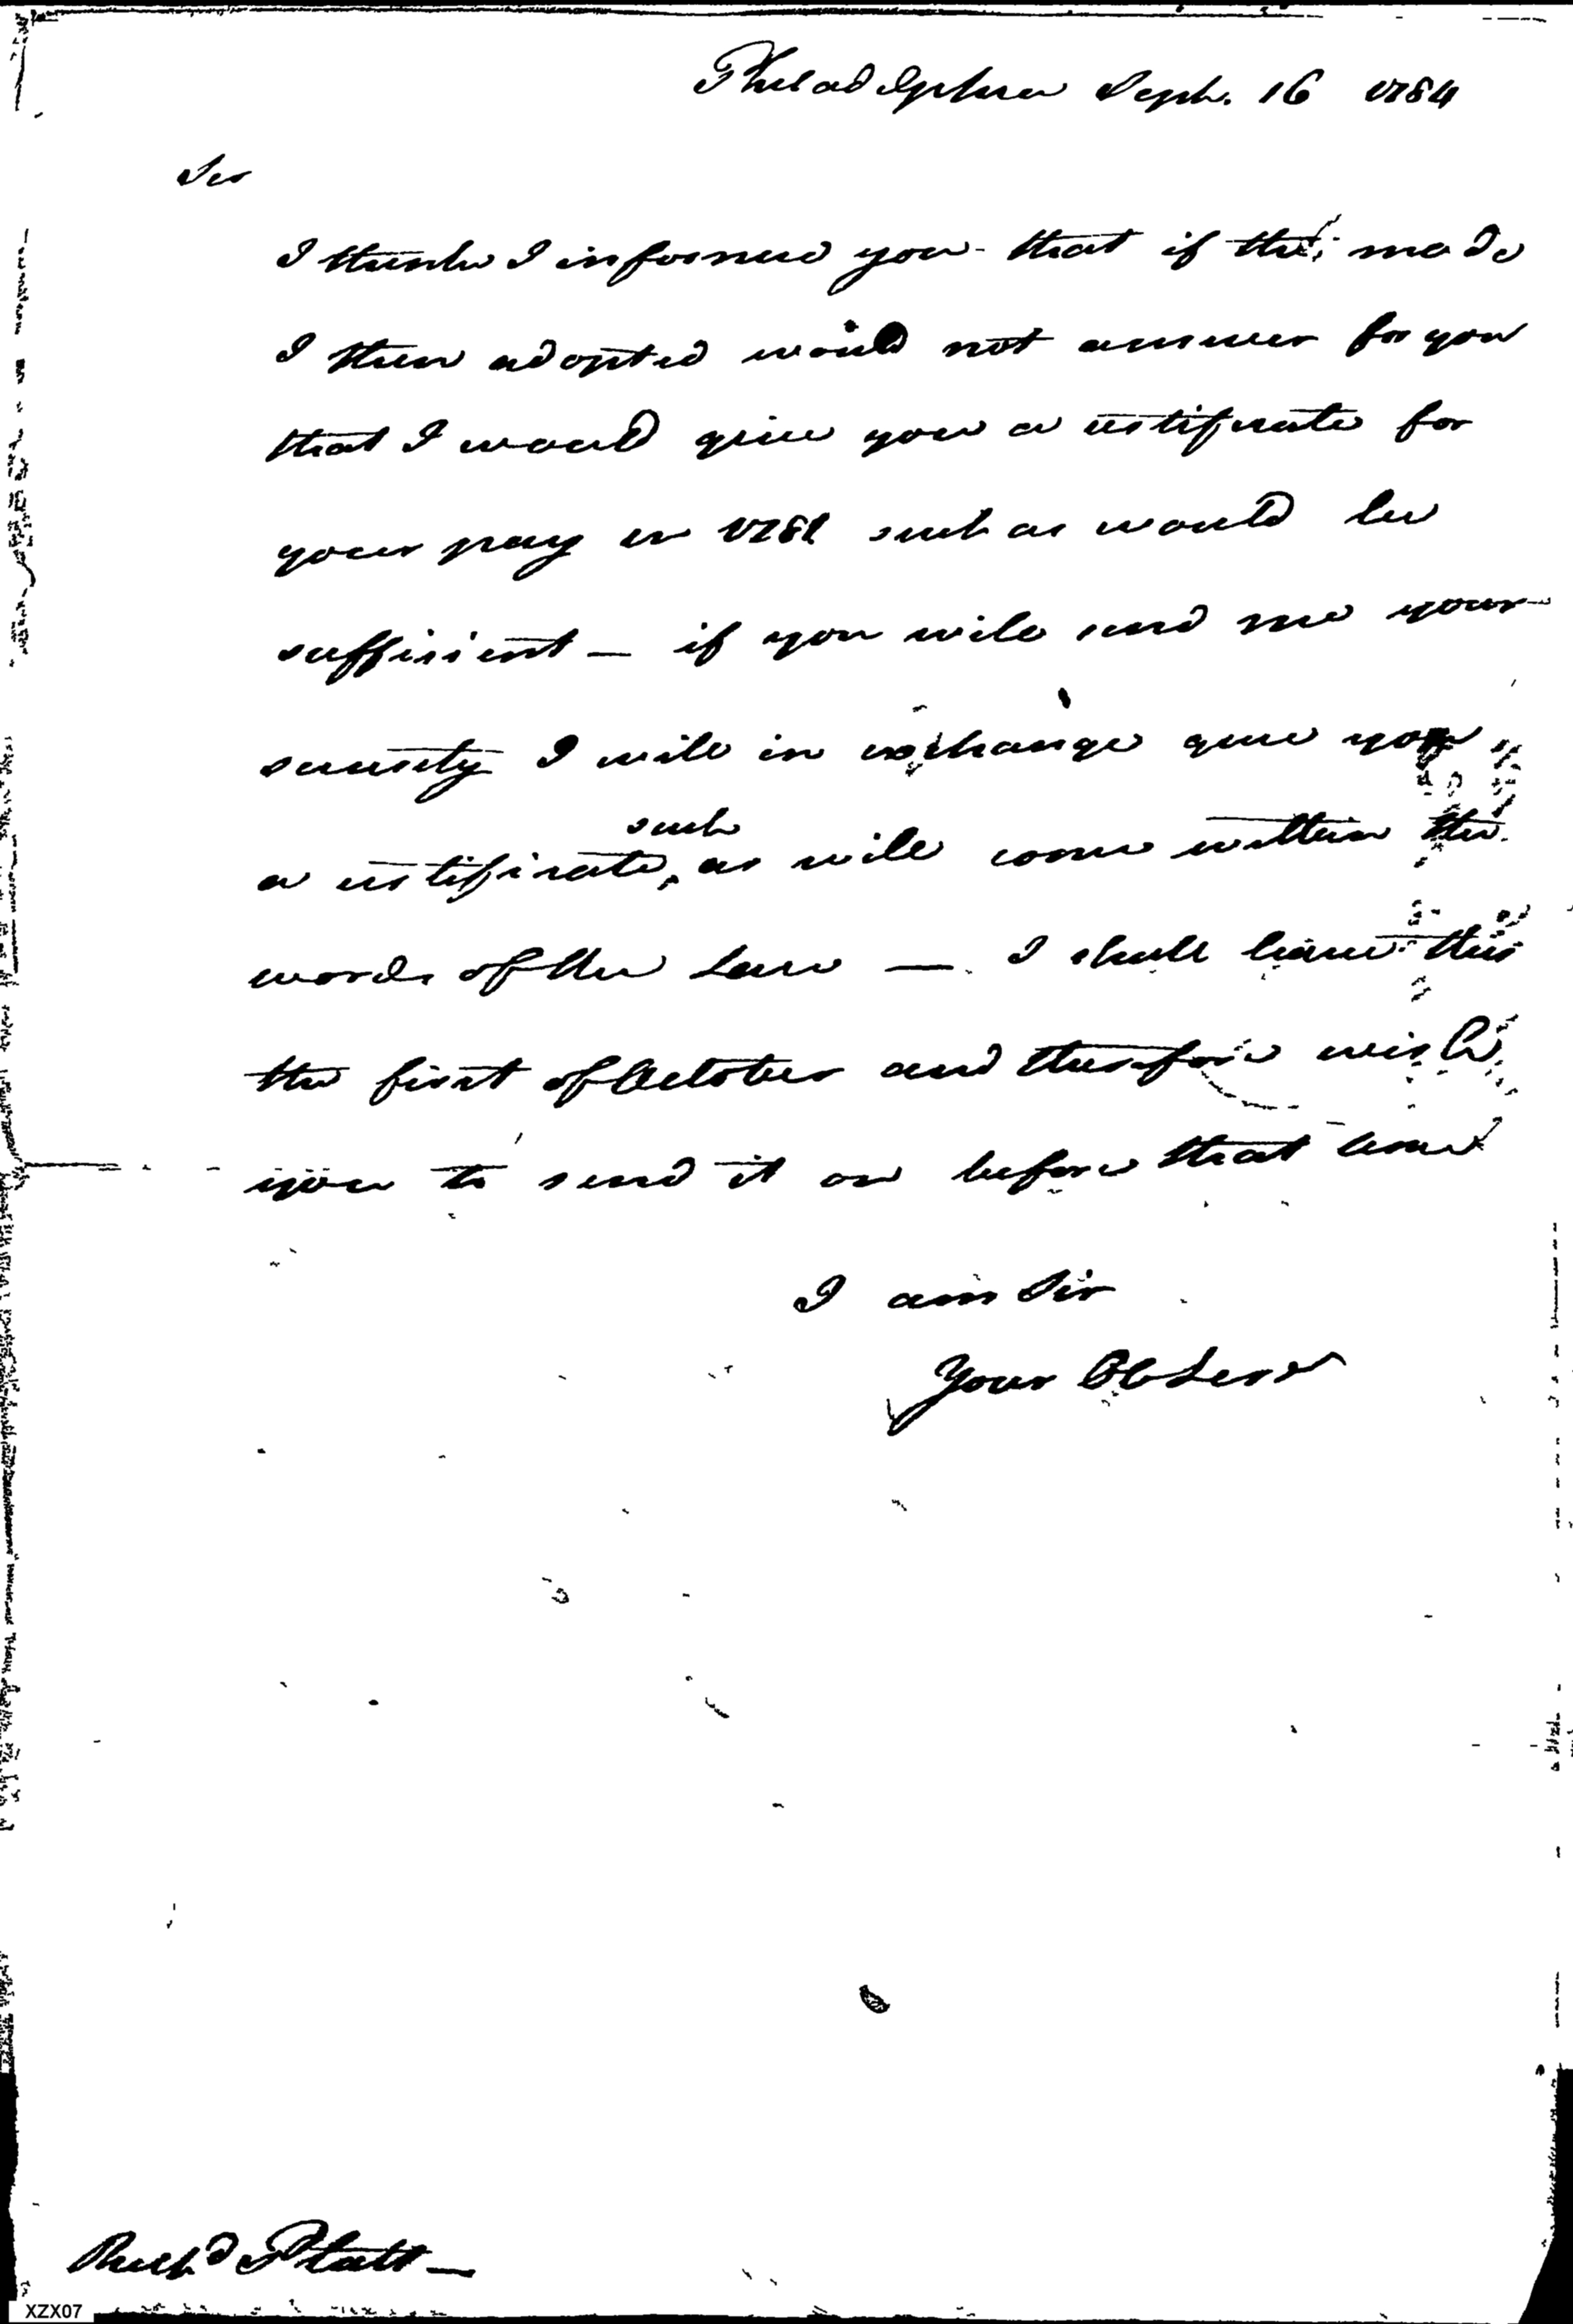 Philadelphia Sept. 16 1784
Sir
I think I informed you that if the mode
I then adopted would not answer for you
that I would give you a certificate for
your pay in 1781 such as would be
sufficient — if you will send me your
security I will in exchange give you
such
a certificate, as will come within the
words of the law — I shall leave this
the first of October and therefore wish
you to send it on before that time
I am Sir
Your Ob Serv
Richd Platt —
XZX07